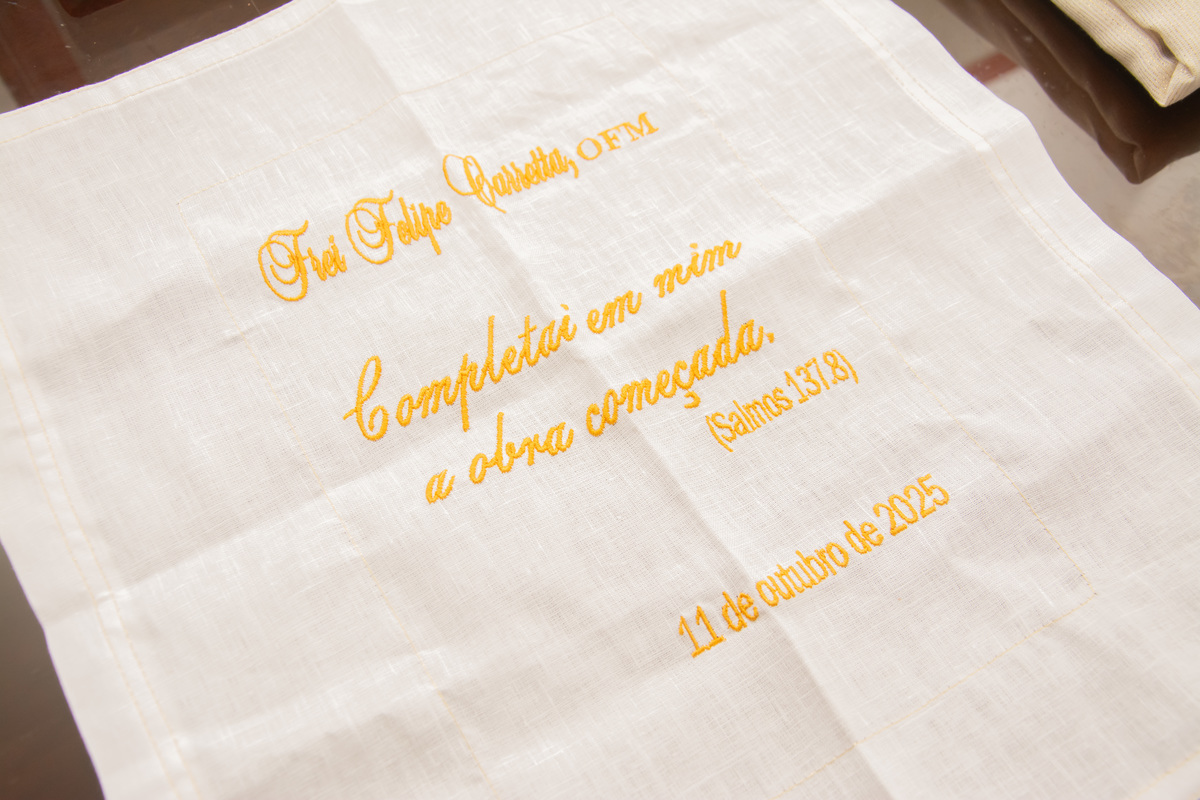 Frei Felipe Carretta, OFM
Completai em mim
a obra começada.
(Salmos 137.8)
11 de outubro de 2025